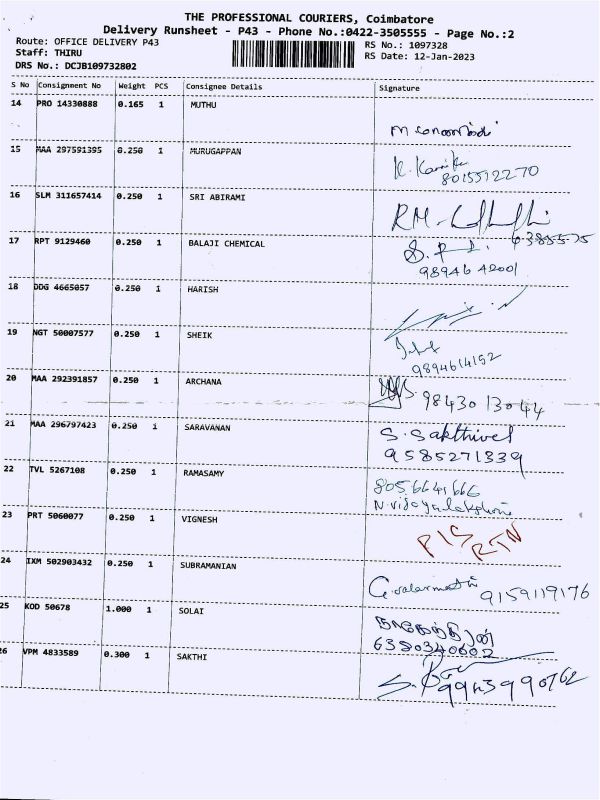 THE PROFESSIONAL COURIERS, Coimbatore
Delivery Runsheet - P43 - Phone No.:0422-3505555 - Page No.:2
Route: OFFICE DELIVERY P43
Staff: THIRU
DRS No.: DCJB109732802
RS No.: 1097328
RS Date: 12-Jan-2023
S No Consignment No Weight PCS Consignee Details Signature
14 PRO 14330888 0.165 1 MUTHU
15 MAA 297591395 0.250 1 MURUGAPPAN
8015512270
16 SLM 311657414 0.250 1 SRI ABIRAMI
17 RPT 9129460 0.250 1 BALAJI CHEMICAL
98946 42001
18 DDG 4665057 0.250 1 HARISH
19 NGT 50007577 0.250 1 SHEIK
9894614152
20 MAA 292391857 0.250 1 ARCHANA
98430 13044
21 MAA 296797423 0.250 1 SARAVANAN
S. Sakthivel
9585271339
22 TVL 5267108 0.250 1 RAMASAMY
8056641666
N. Vijayalakshmi
23 PRT 5060077 0.250 1 VIGNESH
RTN
24 IXM 502903432 0.250 1 SUBRAMANIAN
G. valarmathi 9159119176
25 KOD 50678 1.000 1 SOLAI
6380340602
26 VPM 4833589 0.300 1 SAKTHI
9943990762